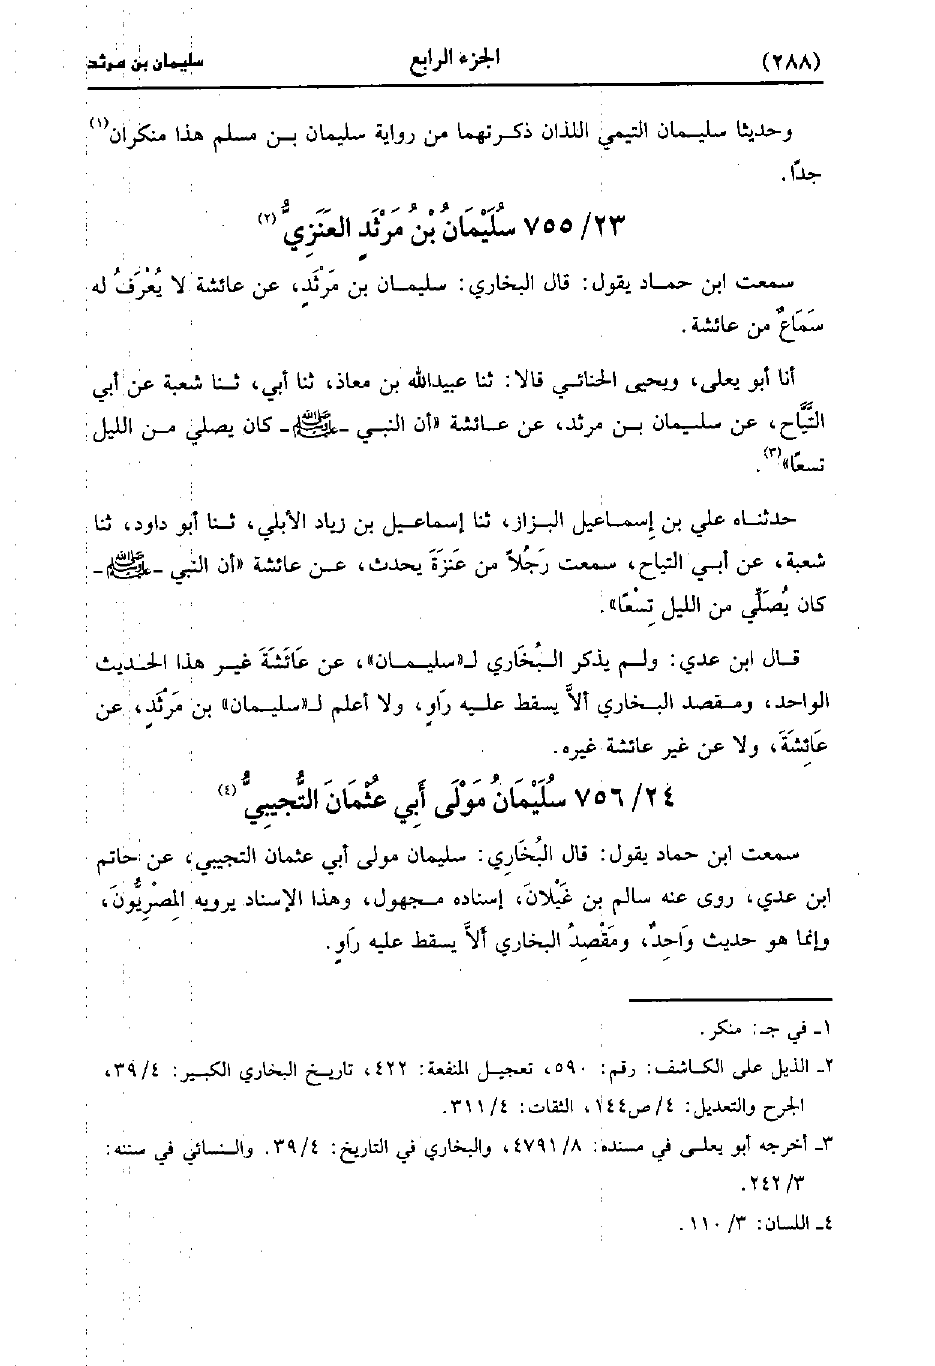 (٢٨٨) الجزء الرابع سليمان بن مرثد
وحديثا سليمان التيمي اللذان ذكرتهما من رواية سليمان بن مسلم هذا منكران(١)
جدًا.
٢٣/ ٧٥٥ سُلَيْمَانُ بْنُ مَرْثَدٍ العَنَزِيُّ(٢)
سمعت ابن حماد يقول: قال البخاري: سليمان بن مَرْثَدٍ، عن عائشة لا يُعْرَفُ له
سَمَاعٌ من عائشة.
أنا أبو يعلى، ويحيى الحنائي قالا: ثنا عبيدالله بن معاذ، ثنا أبي، ثنا شعبة عن أبي
التَّيَّاح، عن سليمان بن مرثد، عن عائشة «أن النبي -ﷺ- كان يصلي من الليل
تسعًا»(٣).
حدثناه علي بن إسماعيل البزاز، ثنا إسماعيل بن زياد الأبلي، ثنا أبو داود، ثنا
شعبة، عن أبي التياح، سمعت رَجُلاً من عَنزَةَ يحدث، عن عائشة «أن النبي -ﷺ-
كان يُصَلِّي من الليل تِسْعًا».
قال ابن عدي: ولم يذكر البُخَاري لـ«سليمان»، عن عَائَشَةَ غير هذا الحديث
الواحد، ومقصد البخاري ألاَّ يسقط عليه رَاوٍ، ولا أعلم لـ«سليمان» بن مَرْثَدٍ، عن
عَائِشَةَ، ولا عن غير عائشة غيره.
٢٤/ ٧٥٦ سُلَيْمَانُ مَوْلَى أَبِي عثْمَانَ التُّجِيبيُّ(٤)
سمعت ابن حماد يقول: قال البُخَارِي: سليمان مولى أبي عثمان التجيبي، عن حاتم
ابن عدي، روى عنه سالم بن غَيْلانَ، إسناده مجهول، وهذا الإسناد يرويه المِصْرِيُّونَ،
وإنما هو حديث وَاحِدٌ، ومَقْصِدُ البخاري ألاَّ يسقط عليه رَاوٍ.
١ـ في جـ: منكر.
٢ـ الذيل على الكاشف: رقم: ٥٩٠، تعجيل المنفعة: ٤٢٢، تاريخ البخاري الكبير: ٤/ ٣٩،
الجرح والتعديل: ٤/ ص١٤٤، الثقات: ٤/ ٣١١.
٣ـ أخرجه أبو يعلى في مسنده: ٨/ ٤٧٩١، والبخاري في التاريخ: ٤/ ٣٩. والنسائي في سننه:
٣/ ٢٤٢.
٤ـ اللسان: ٣/ ١١٠.